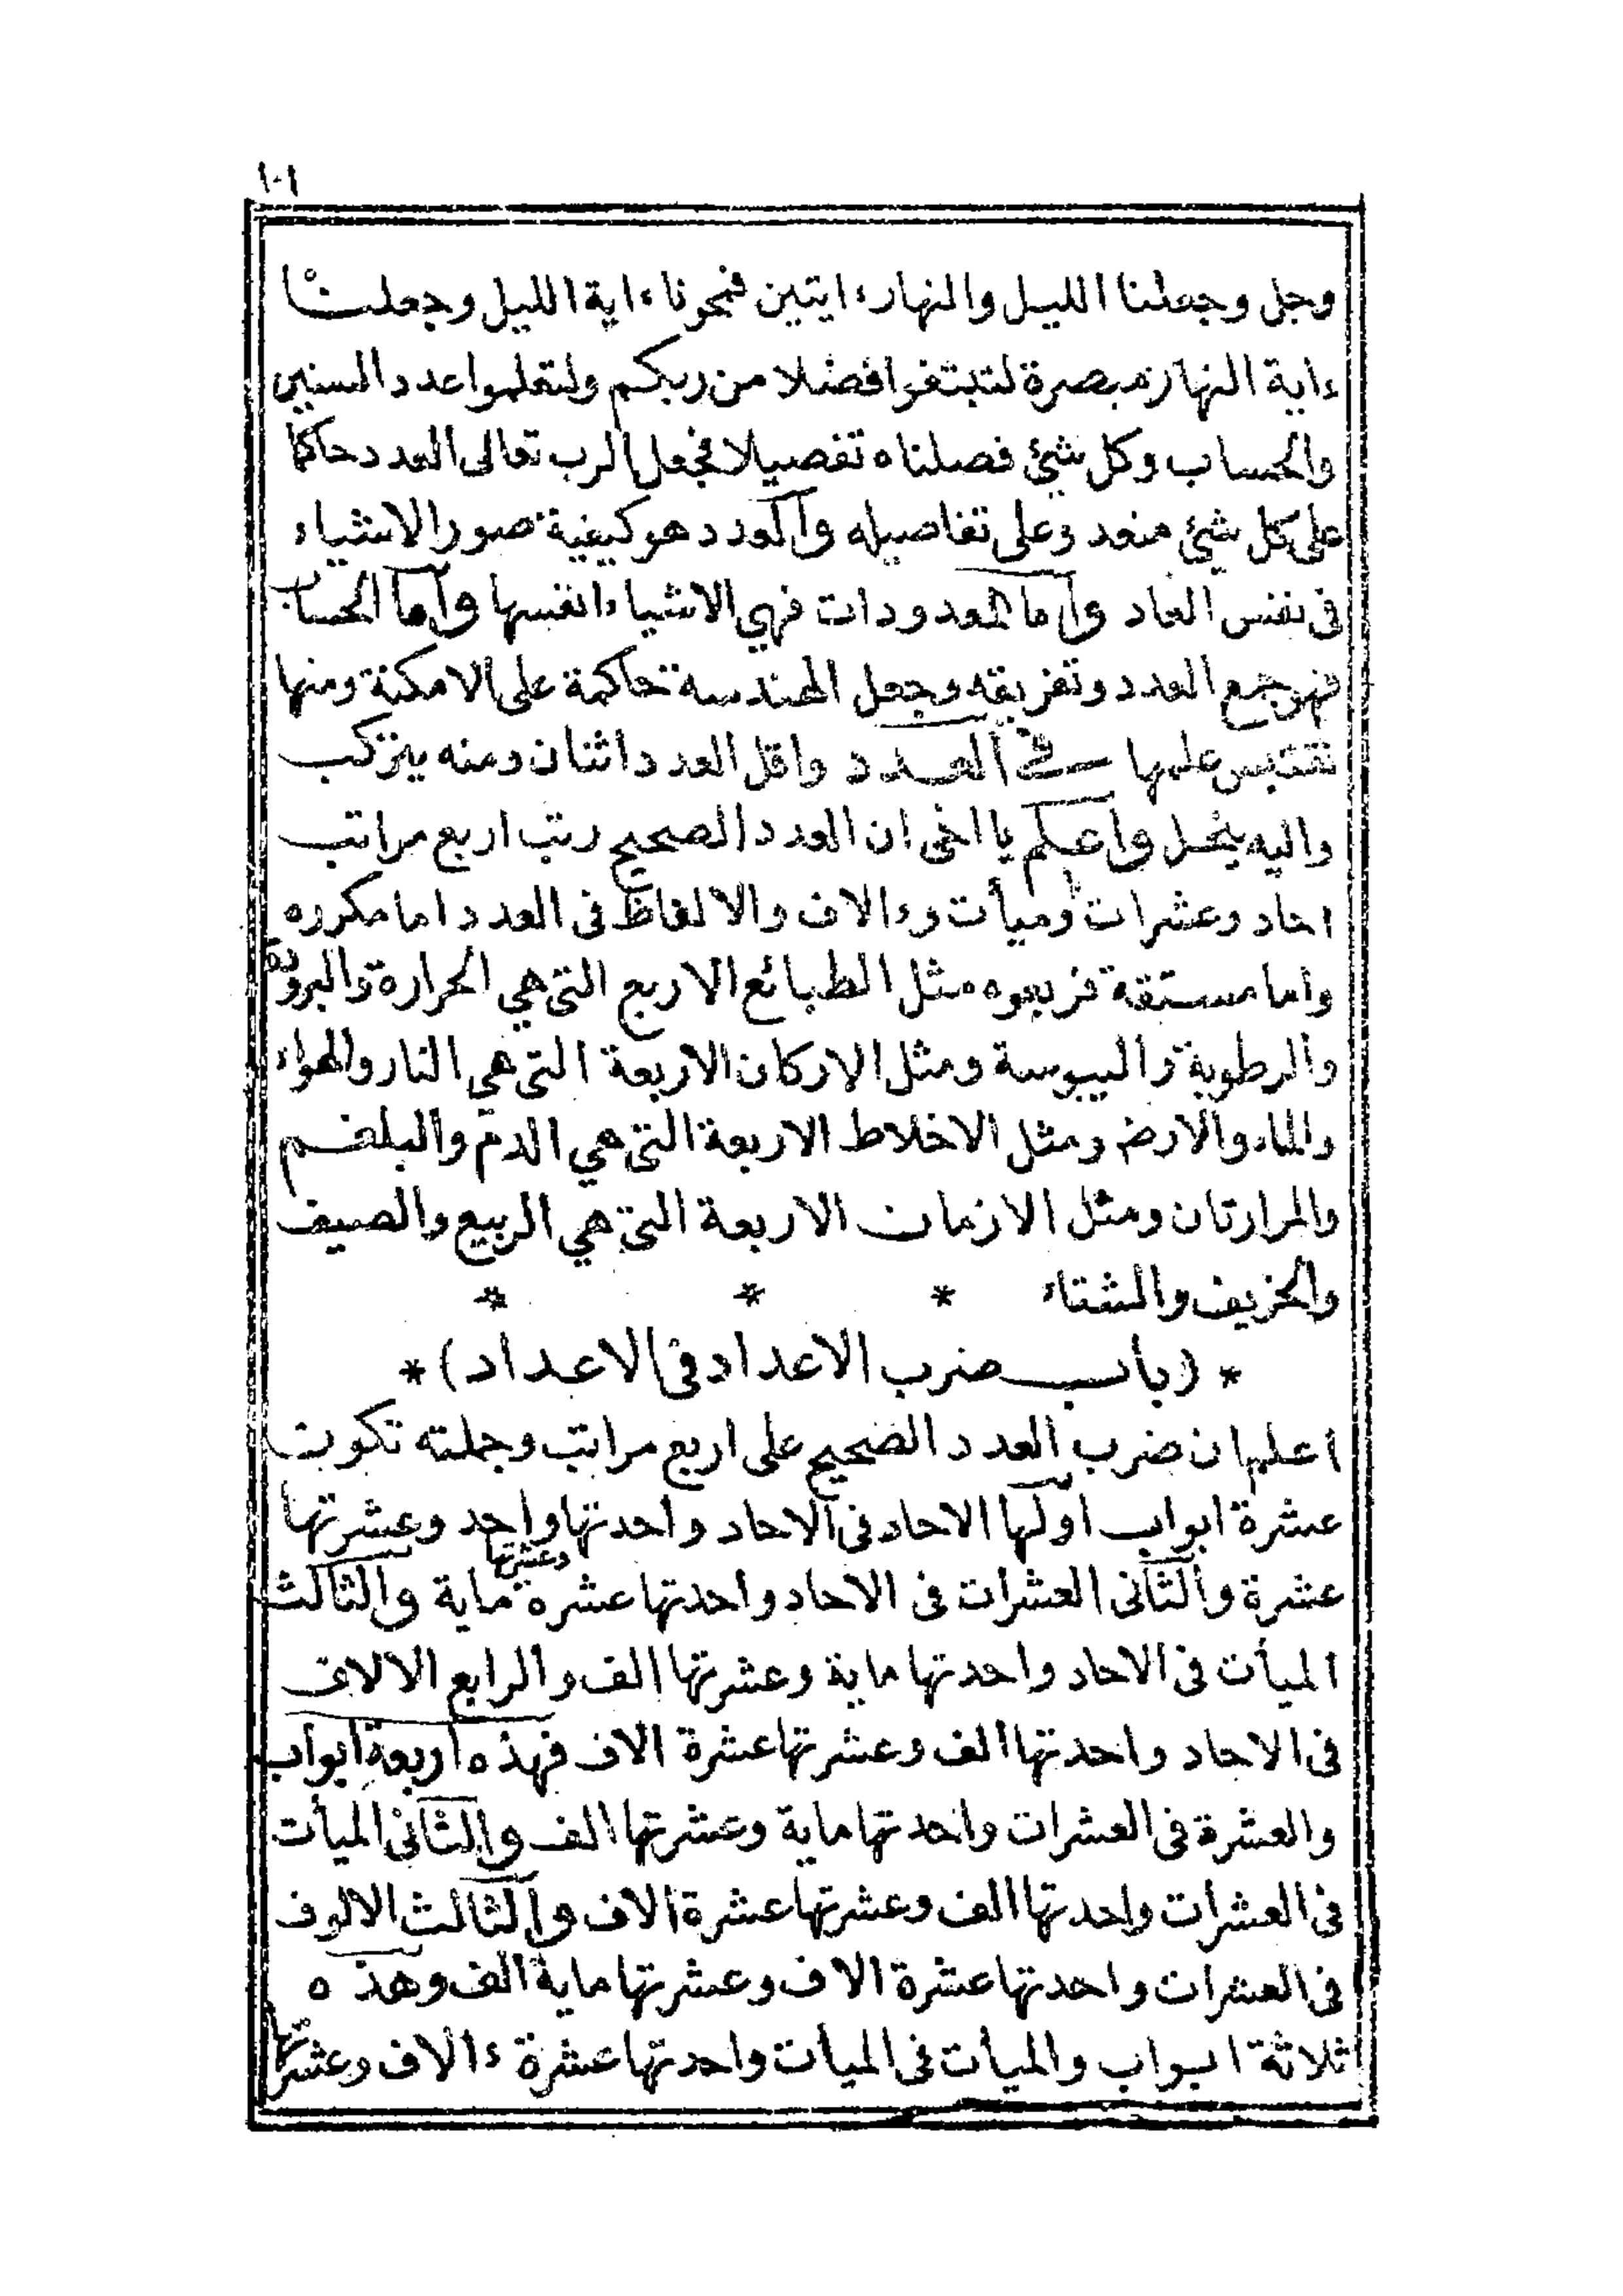 ١٠١
وجل وجعلنا الليل والنهار ءايتين فمحونا ءاية الليل وجعلنا
ءاية النهار مبصرة لتبتغوا فضلا من ربكم ولتعلموا عدد السنين
والحساب وكل شئ فصلناه تفصيلا فجعل الرب تعالى العدد حاكما
على كل شئ منعد وعلى تفاصيله والعدد هو كيفية صور الاشياء
فى نفس العاد واما المعدودات فهي الاشياء انفسها واما الحساب
فهو جمع العدد وتفريقه وجعل الهندسة حاكمة على الامكنة ومنها
تقتبس علمها فى العدد واقل العدد اثنان ومنه يتركب
واليه ينحل واعلم يا اخى ان العدد الصحيح رتب اربع مراتب
احاد وعشرات وميأت وءالاف والالفاظ فى العدد اما مكرره
واما مستقة فربعوه مثل الطبائع الاربع التى هي الحرارة والبرودة
والرطوبة واليبوسة ومثل الاركان الاربعة التى هي النار والهواء
والماء والارض ومثل الاخلاط الاربعة التى هي الدم والبلغم
والمرارتان ومثل الازمان الاربعة التى هي الربيع والصيف
والخريف والشتاء * * *
* (باب ضرب الاعداد فى الاعداد) *
اعلم ان ضرب العدد الصحيح على اربع مراتب وجملته تكون
عشرة ابواب اولها الاحاد فى الاحاد واحدتها واحد وعشرتها
عشرة والثانى العشرات فى الاحاد واحدتها عشره وعشرتها ماية والثالث
الميأت فى الاحاد واحدتها ماية وعشرتها الف والرابع الالاف
فى الاحاد واحدتها الف وعشرتها عشرة الاف فهذه اربعة ابواب
والعشرة فى العشرات واحدتها ماية وعشرتها الف والثانى الميأت
فى العشرات واحدتها الف وعشرتها عشرة الاف والثالث الالوف
فى العشرات واحدتها عشرة الاف وعشرتها ماية الف وهذه
ثلاثة ابواب والميأت فى الميأت واحدتها عشرة ءالاف وعشرتها